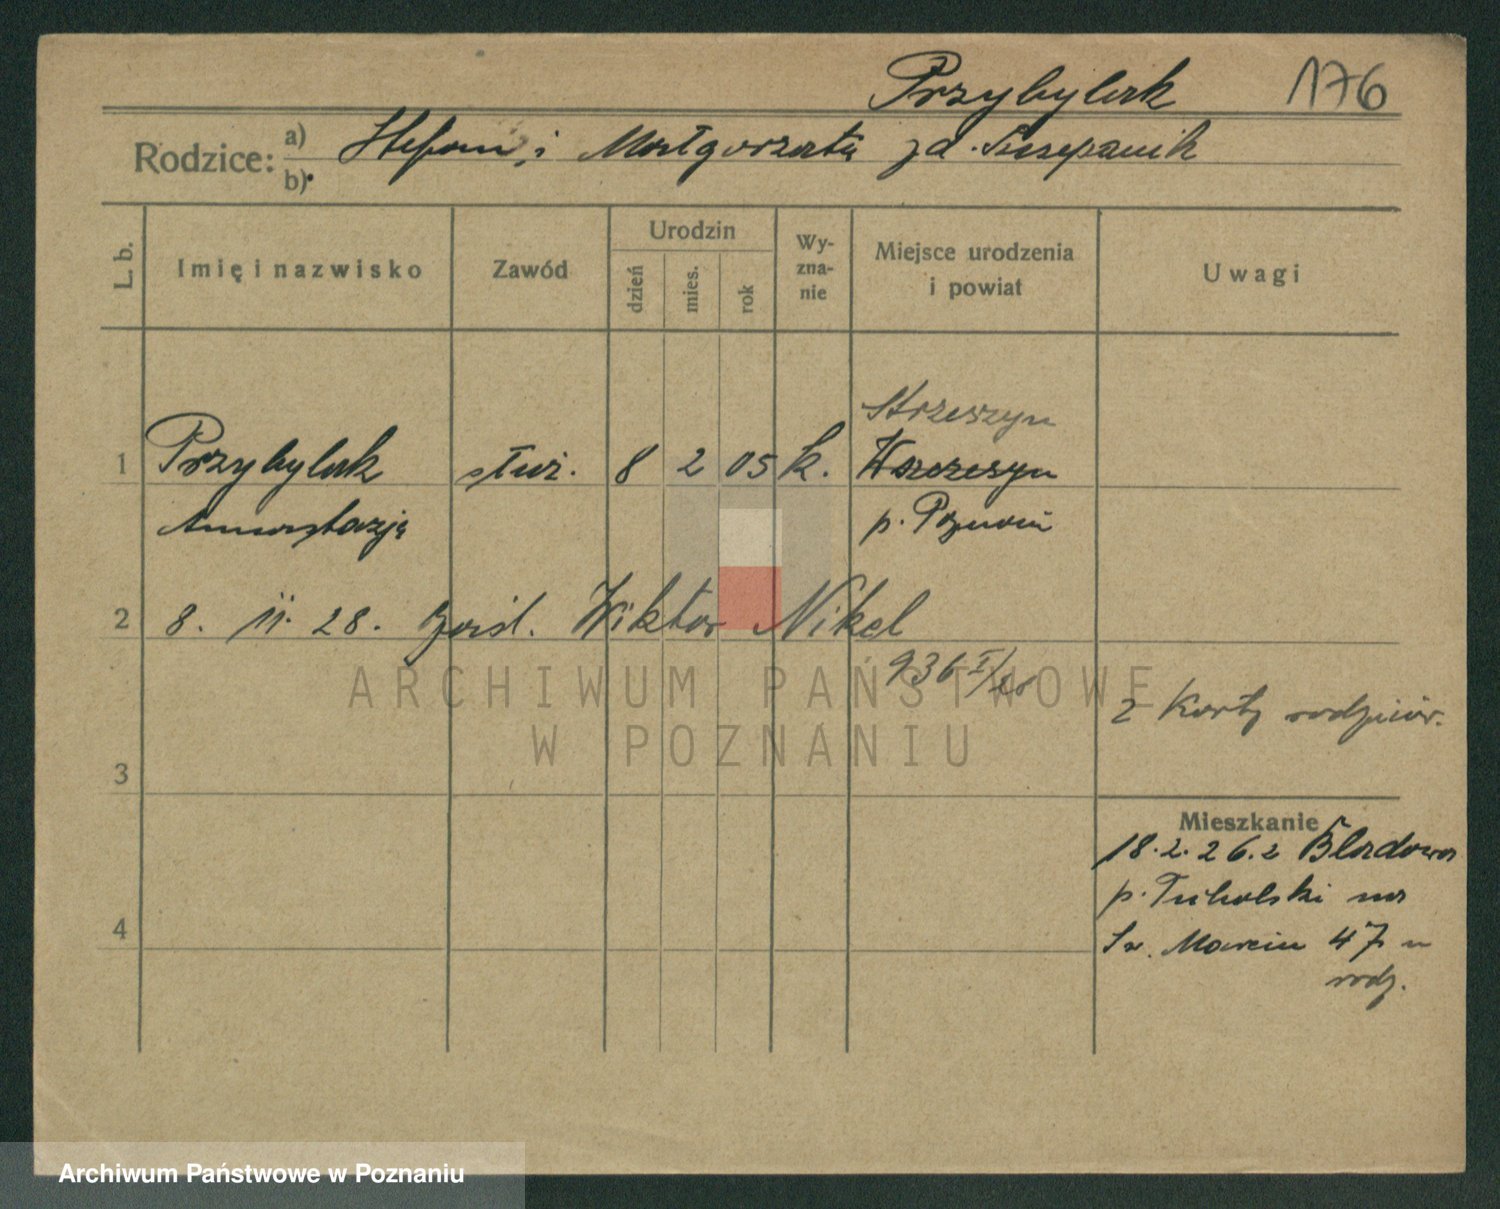 Przybylak 176
Rodzice: a) Stefan i Małgorzata zd. Szczepanik
b)
L. b.
Imię i nazwisko
Zawód
Urodzin
dzień
mies.
rok
Wy-
zna-
nie
Miejsce urodzenia
i powiat
Uwagi
Strzeszyn
1 Przybylak służ. 8 2 05 k. Wszczeszyn
Anastazja p. Poznań
2 8. 11. 28. Wiktor Nikel
936 I/28
2 Karty rodziców.
3
Mieszkanie
18.2.26. z Bladowa
p. Tucholski na
4
Św. Marcin 47 u
rodz.
ARCHIWUM PAŃSTWOWE
W POZNANIU
Archiwum Państwowe w Poznaniu